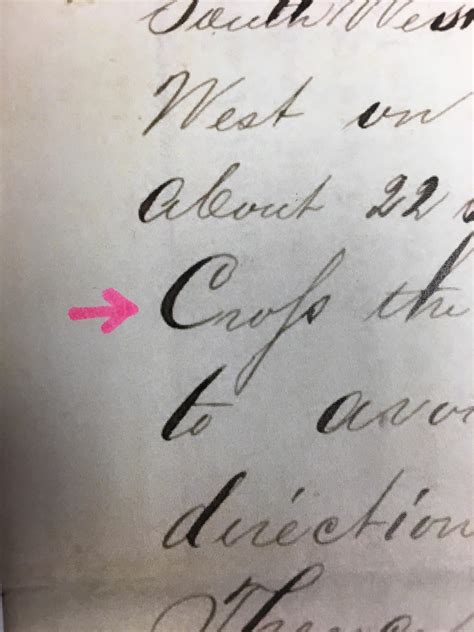 South West
West on
About 22
Croſs the
to avo
direction